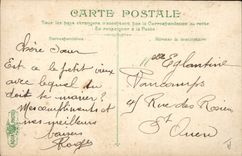 CARTE POSTALE
Tous les pays étrangers n'acceptent pas la Correspondance au recto
Se renseigner à la Poste
Correspondance
Chère Sœur
Est ce le petit vieux
avec lequel tu
doit te marier ?
Mes compliments et
mes meilleurs
baisers
Roger
Melle Eglantine
Vancamps
4 Rue des Rosiers
St Ouen